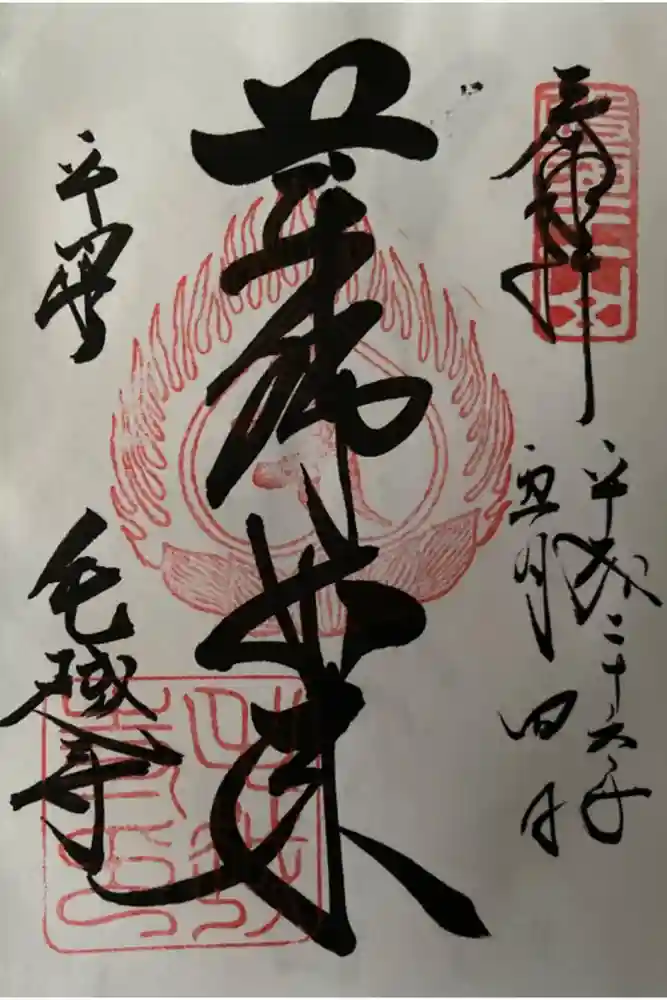 奉拝
平成二十六年
五月四日
薬師如来
平泉
毛越寺